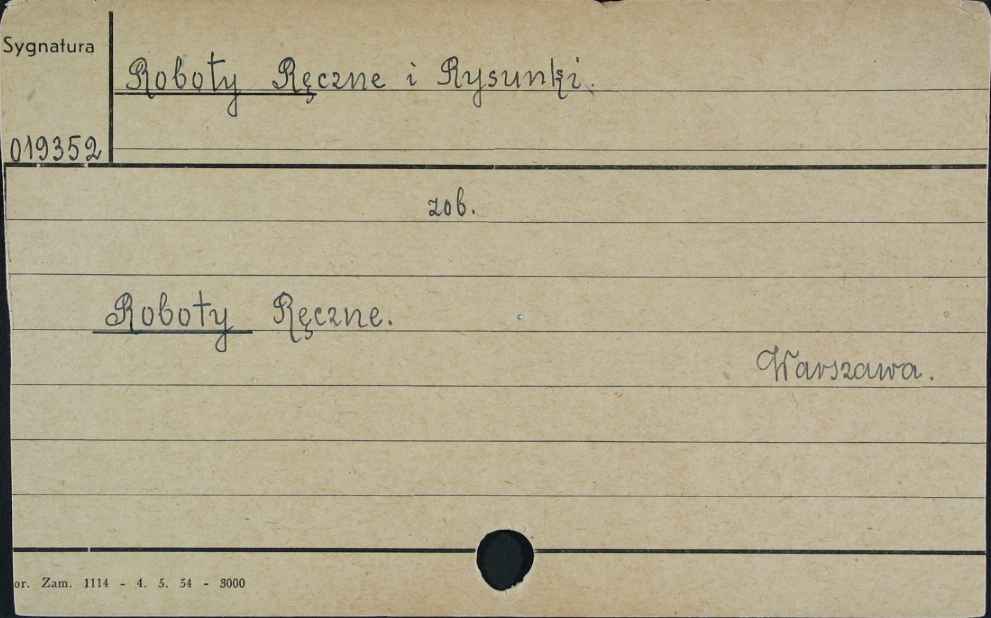 Sygnatura
Roboty Ręczne i Rysunki.
019352
zob.
Roboty Ręczne.
Warszawa.
or. Zam. 1114 - 4. 5. 54 - 3000